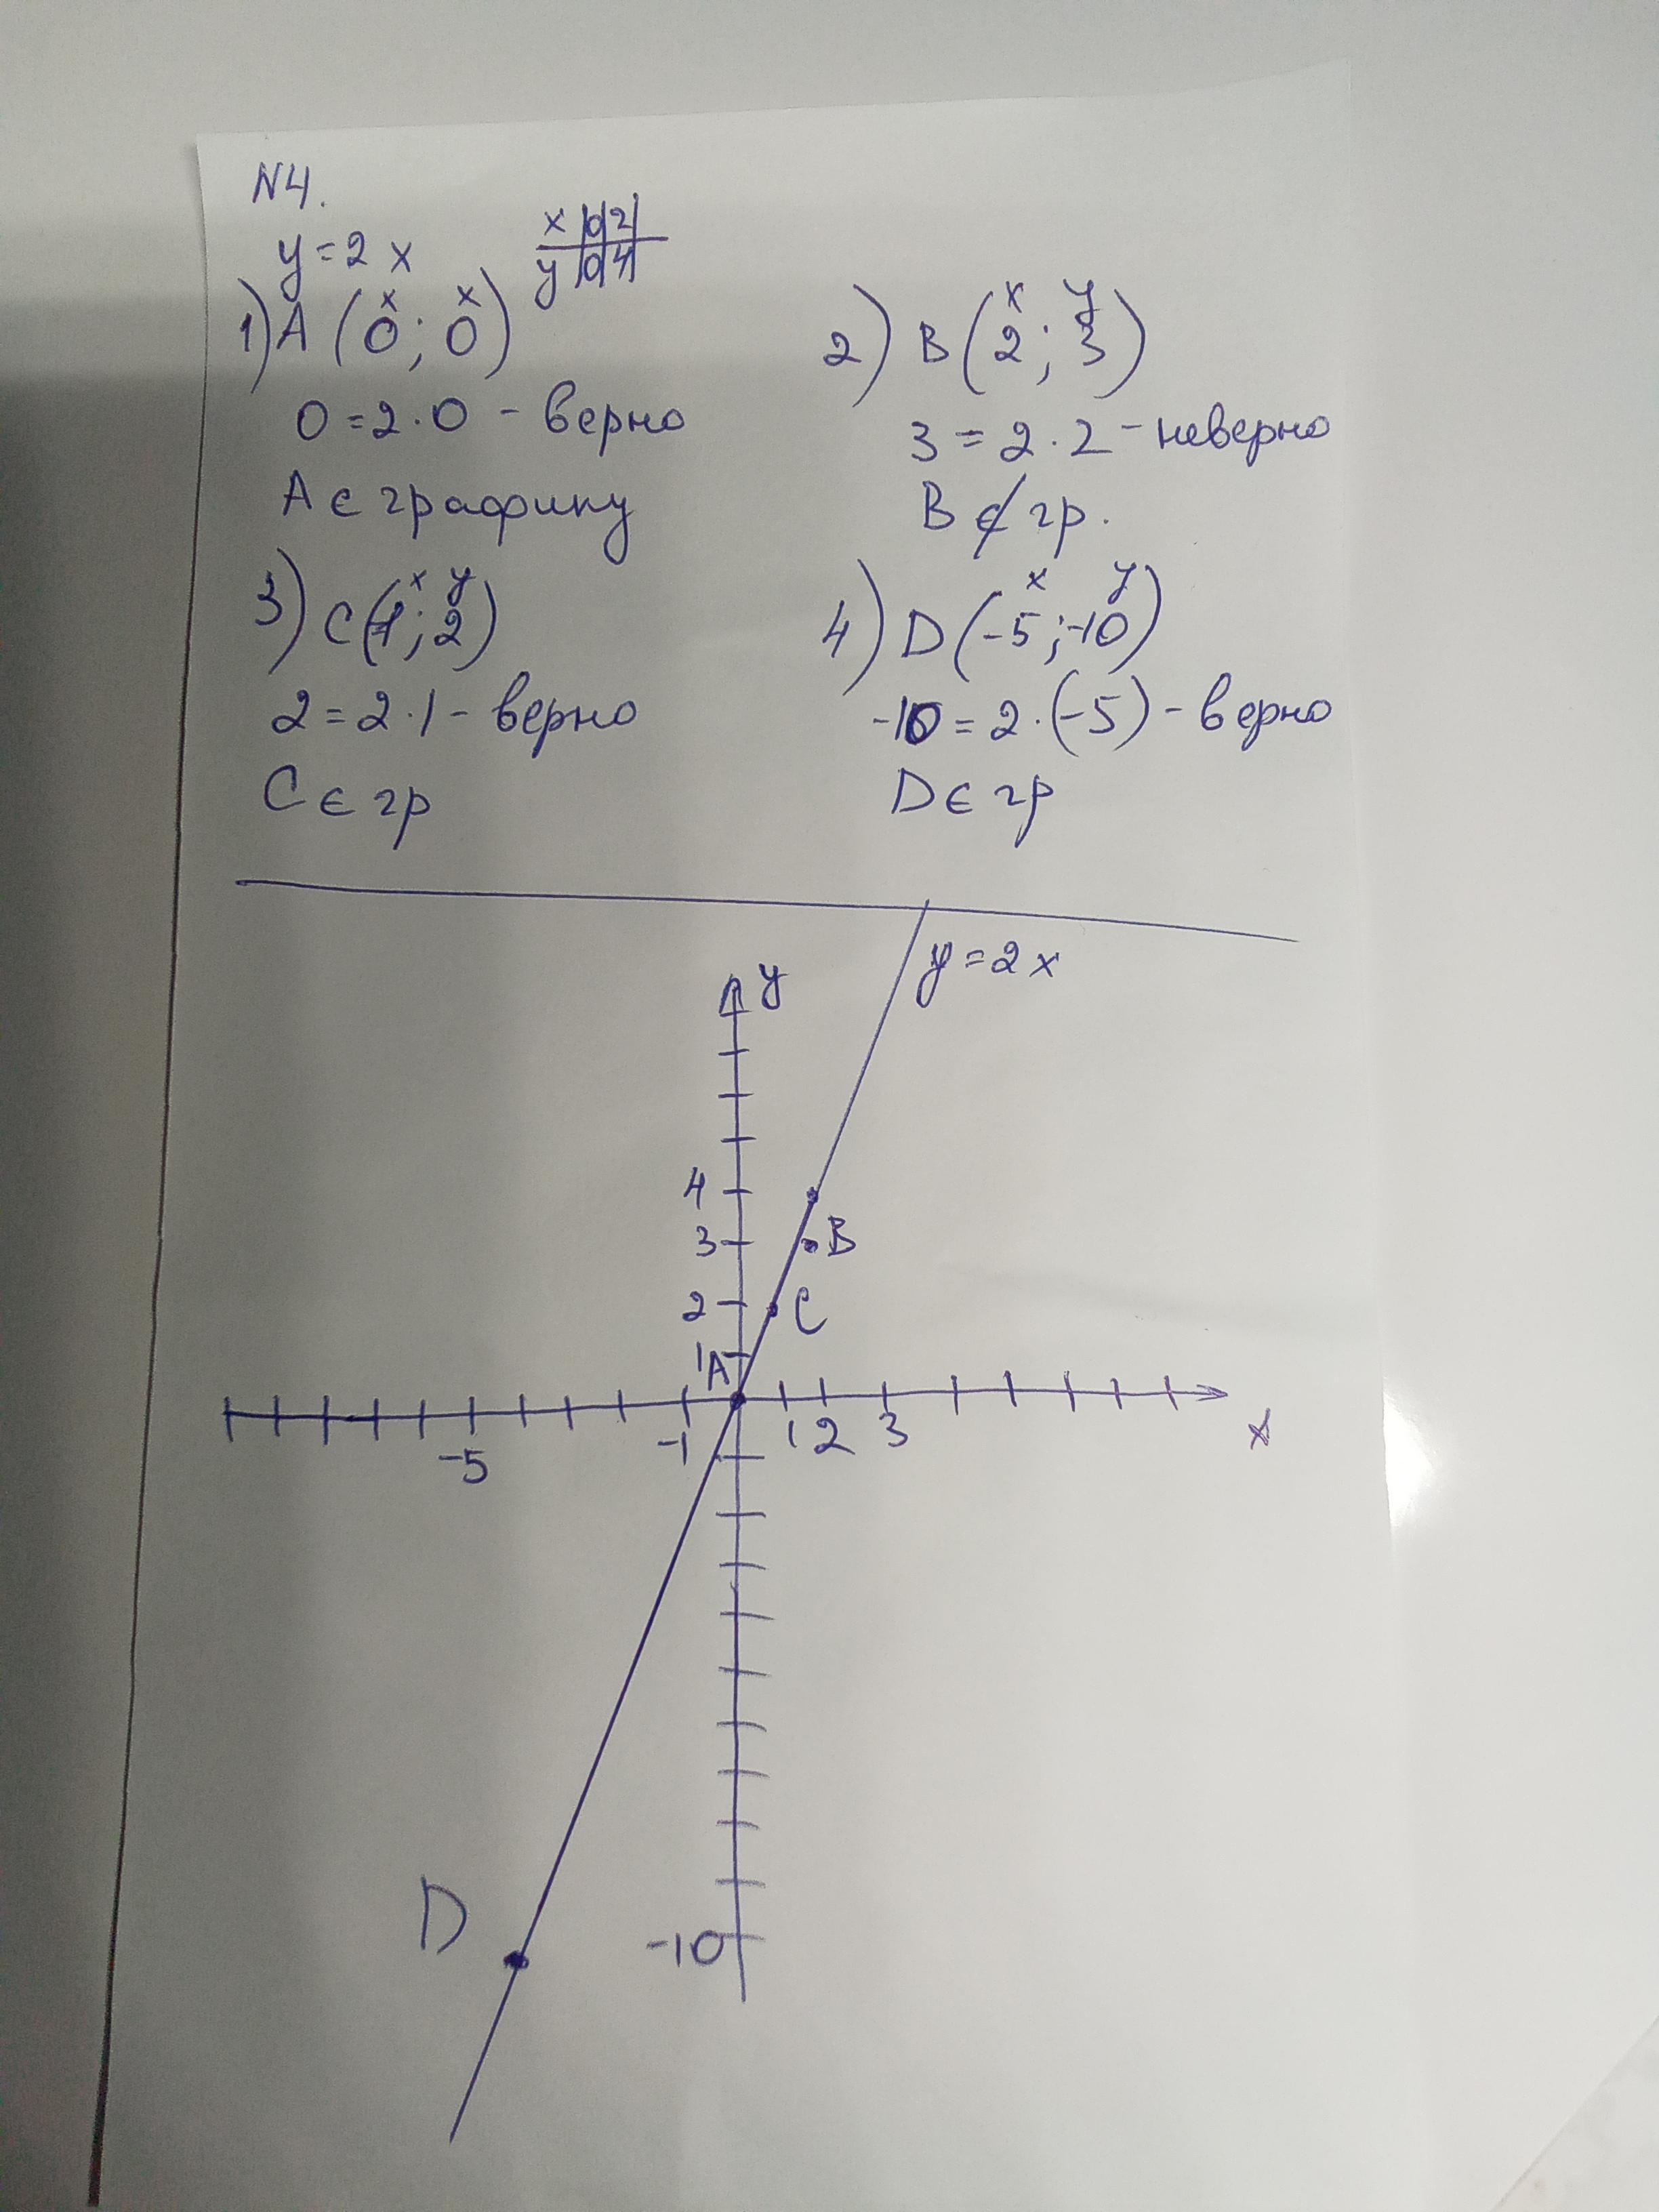 N4.
y = 2x
x | 0 | 2 |
y | 0 | 4 |
x x
1) A (0; 0)
0 = 2·0 - верно
A ∈ графику
x y
2) B (2; 3)
3 = 2·2 - неверно
B ∉ гр.
x y
3) C (1; 2)
2 = 2·1 - верно
C ∈ гр
x y
4) D (-5; -10)
-10 = 2·(-5) - верно
D ∈ гр
y
y = 2x
4
3
B
2
C
1
A
-5
-1
1
2
3
x
D
-10